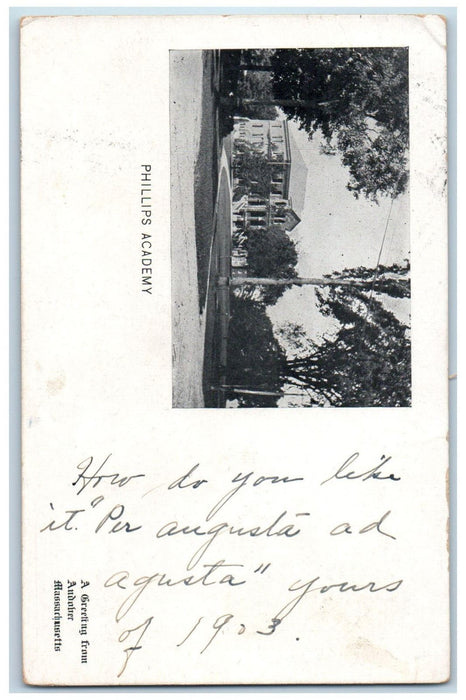 PHILLIPS ACADEMY
How do you like
it. "Per augustā ad
agusta" yours
of 1903.
A Greeting from
Andover
Massachusetts